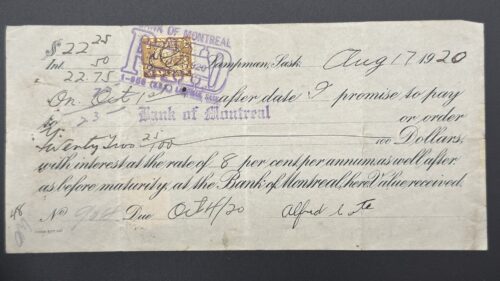 $22 25 BANK OF MONTREAL
Int. 50 PAID Lampman, Sask. Aug 17 1920
22.75
On Oct 1st after date I promise to pay
Bank of Montreal or order
23
Twenty Two 25/100 100 Dollars,
with interest at the rate of 8 per cent per annum as well after
as before maturity, at the Bank of Montreal, here. Value received.
No Due Oct 4/20 Alfred Cote
48